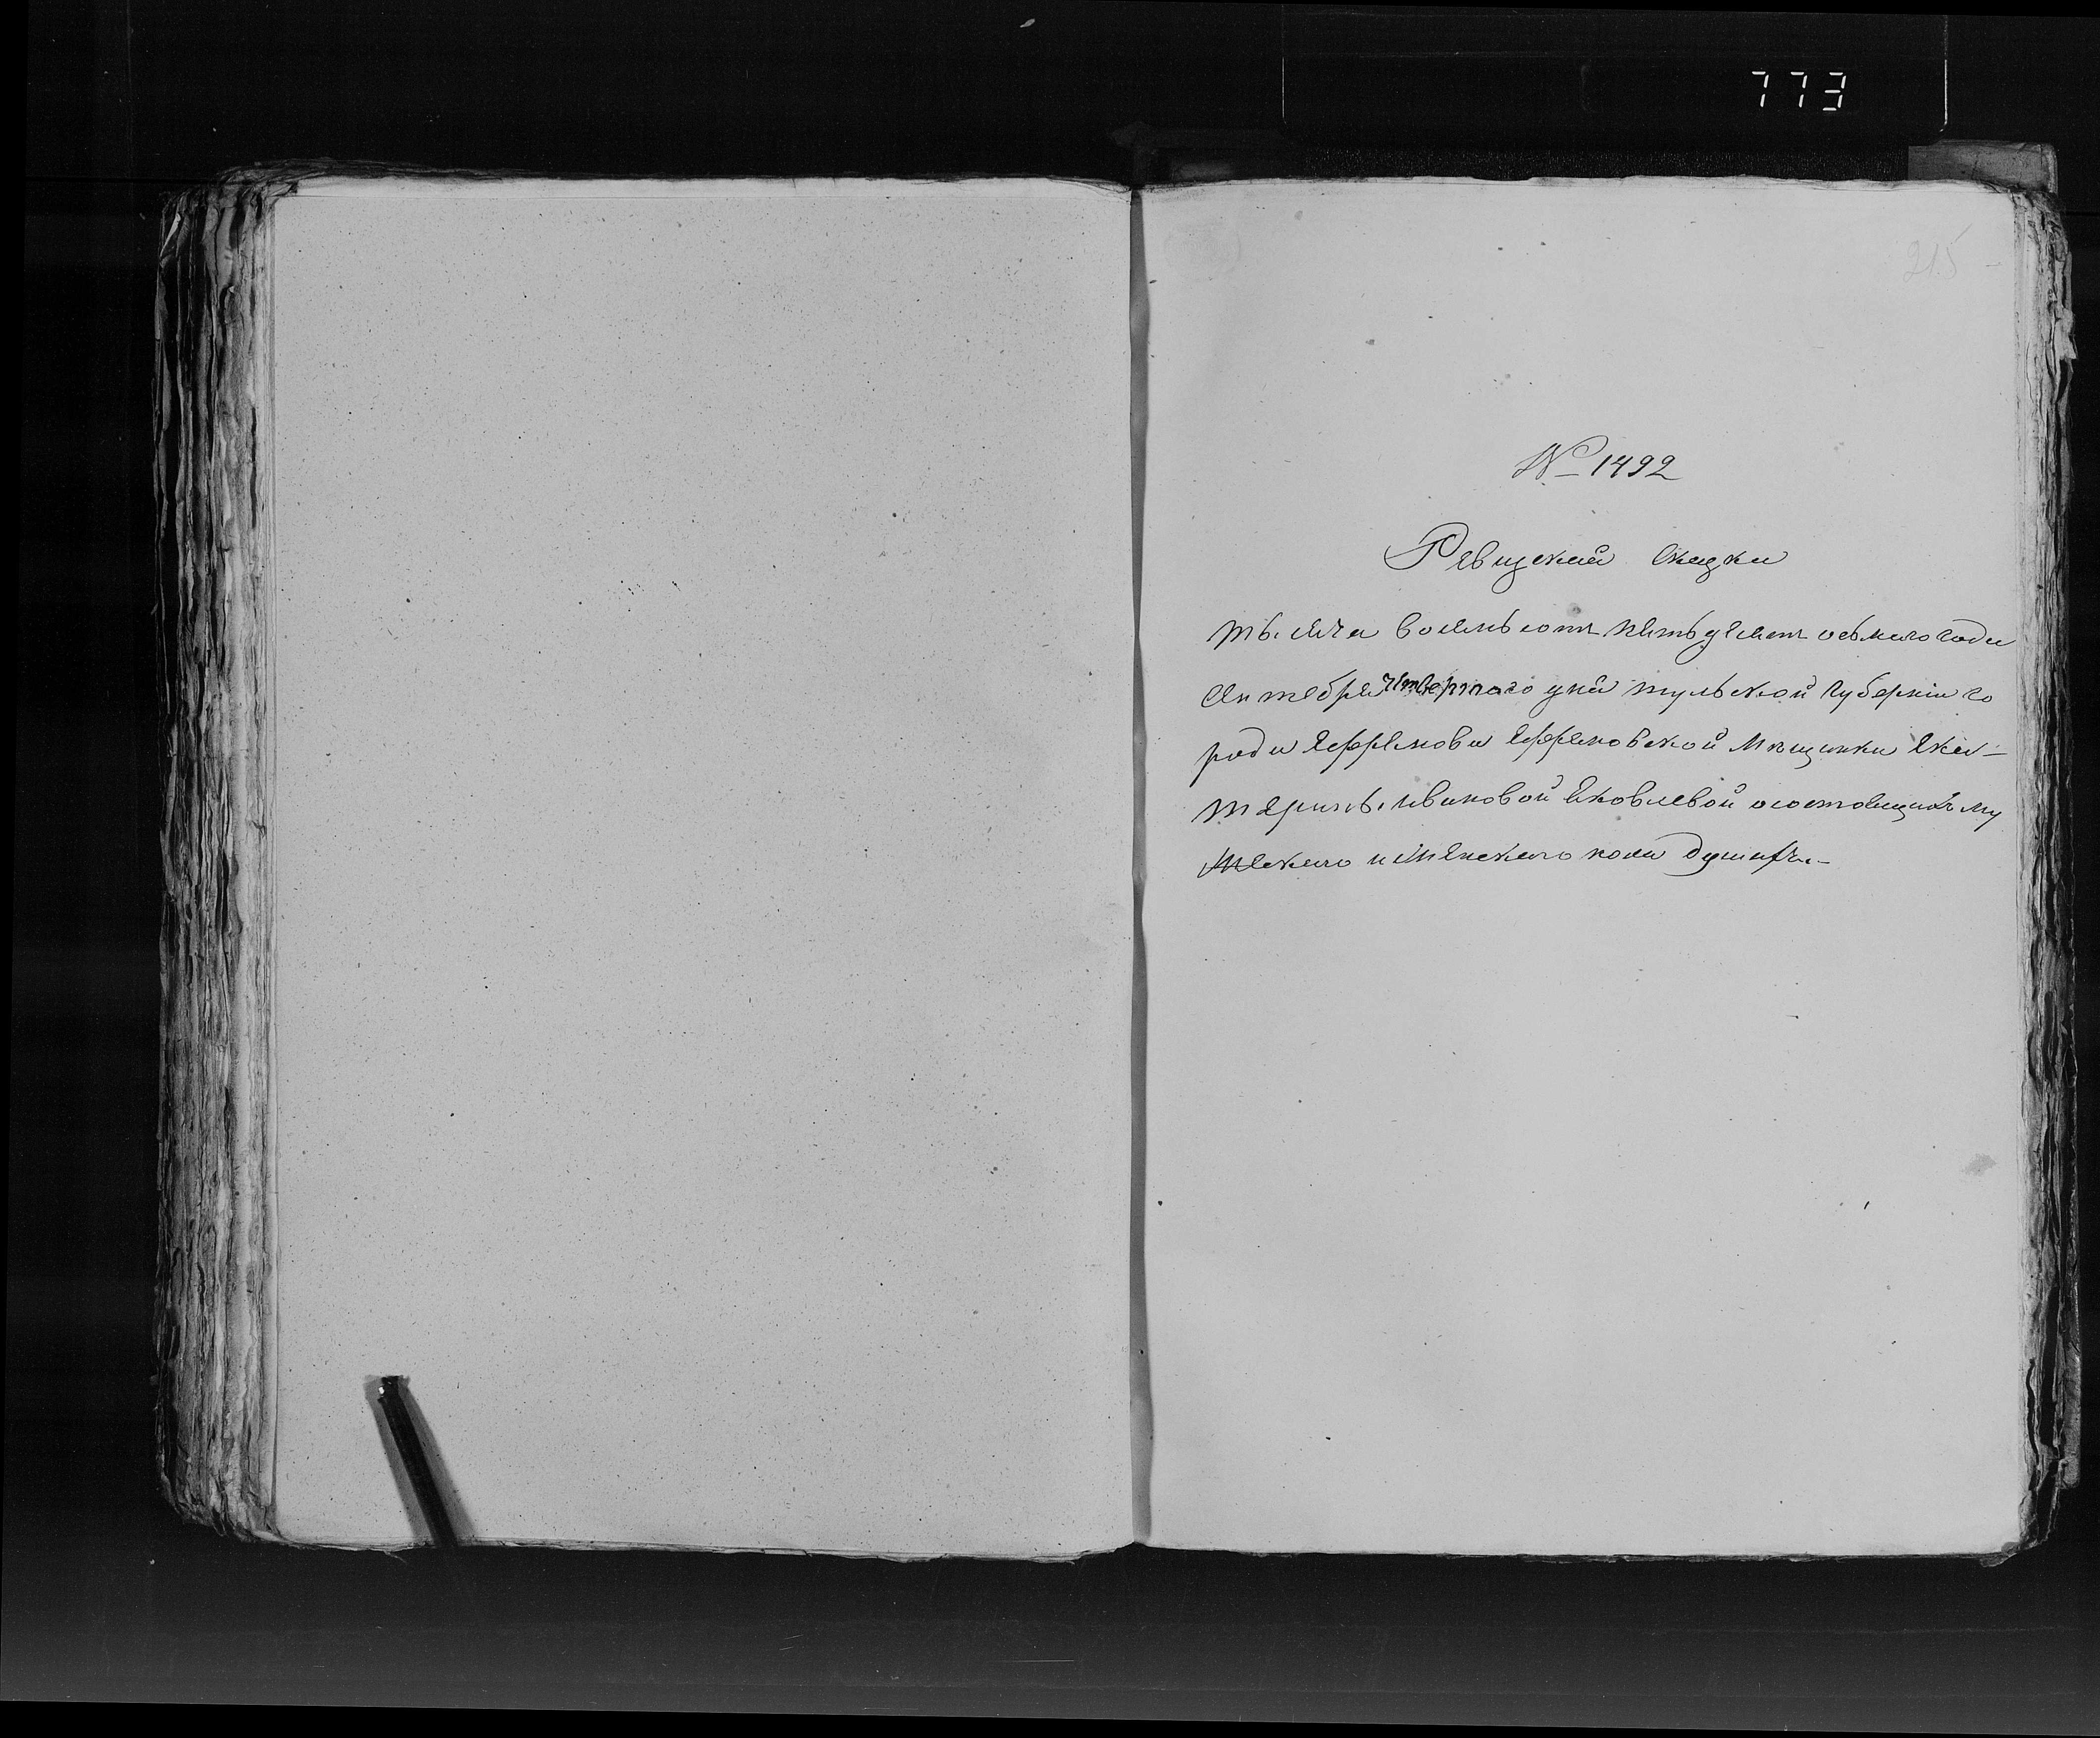 773
215
№ 1492
Ревизская Скаска
тысяча восемьсотъ пятьдесятъ осьмаго года
Сентебря четвертаго дня тульской губерніи го
рода Ефремова Ефремовской Мещанки Ека-
терины Ивановой Яковлевой осостоящихъ му
жескаго иженскаго пола душахъ.-